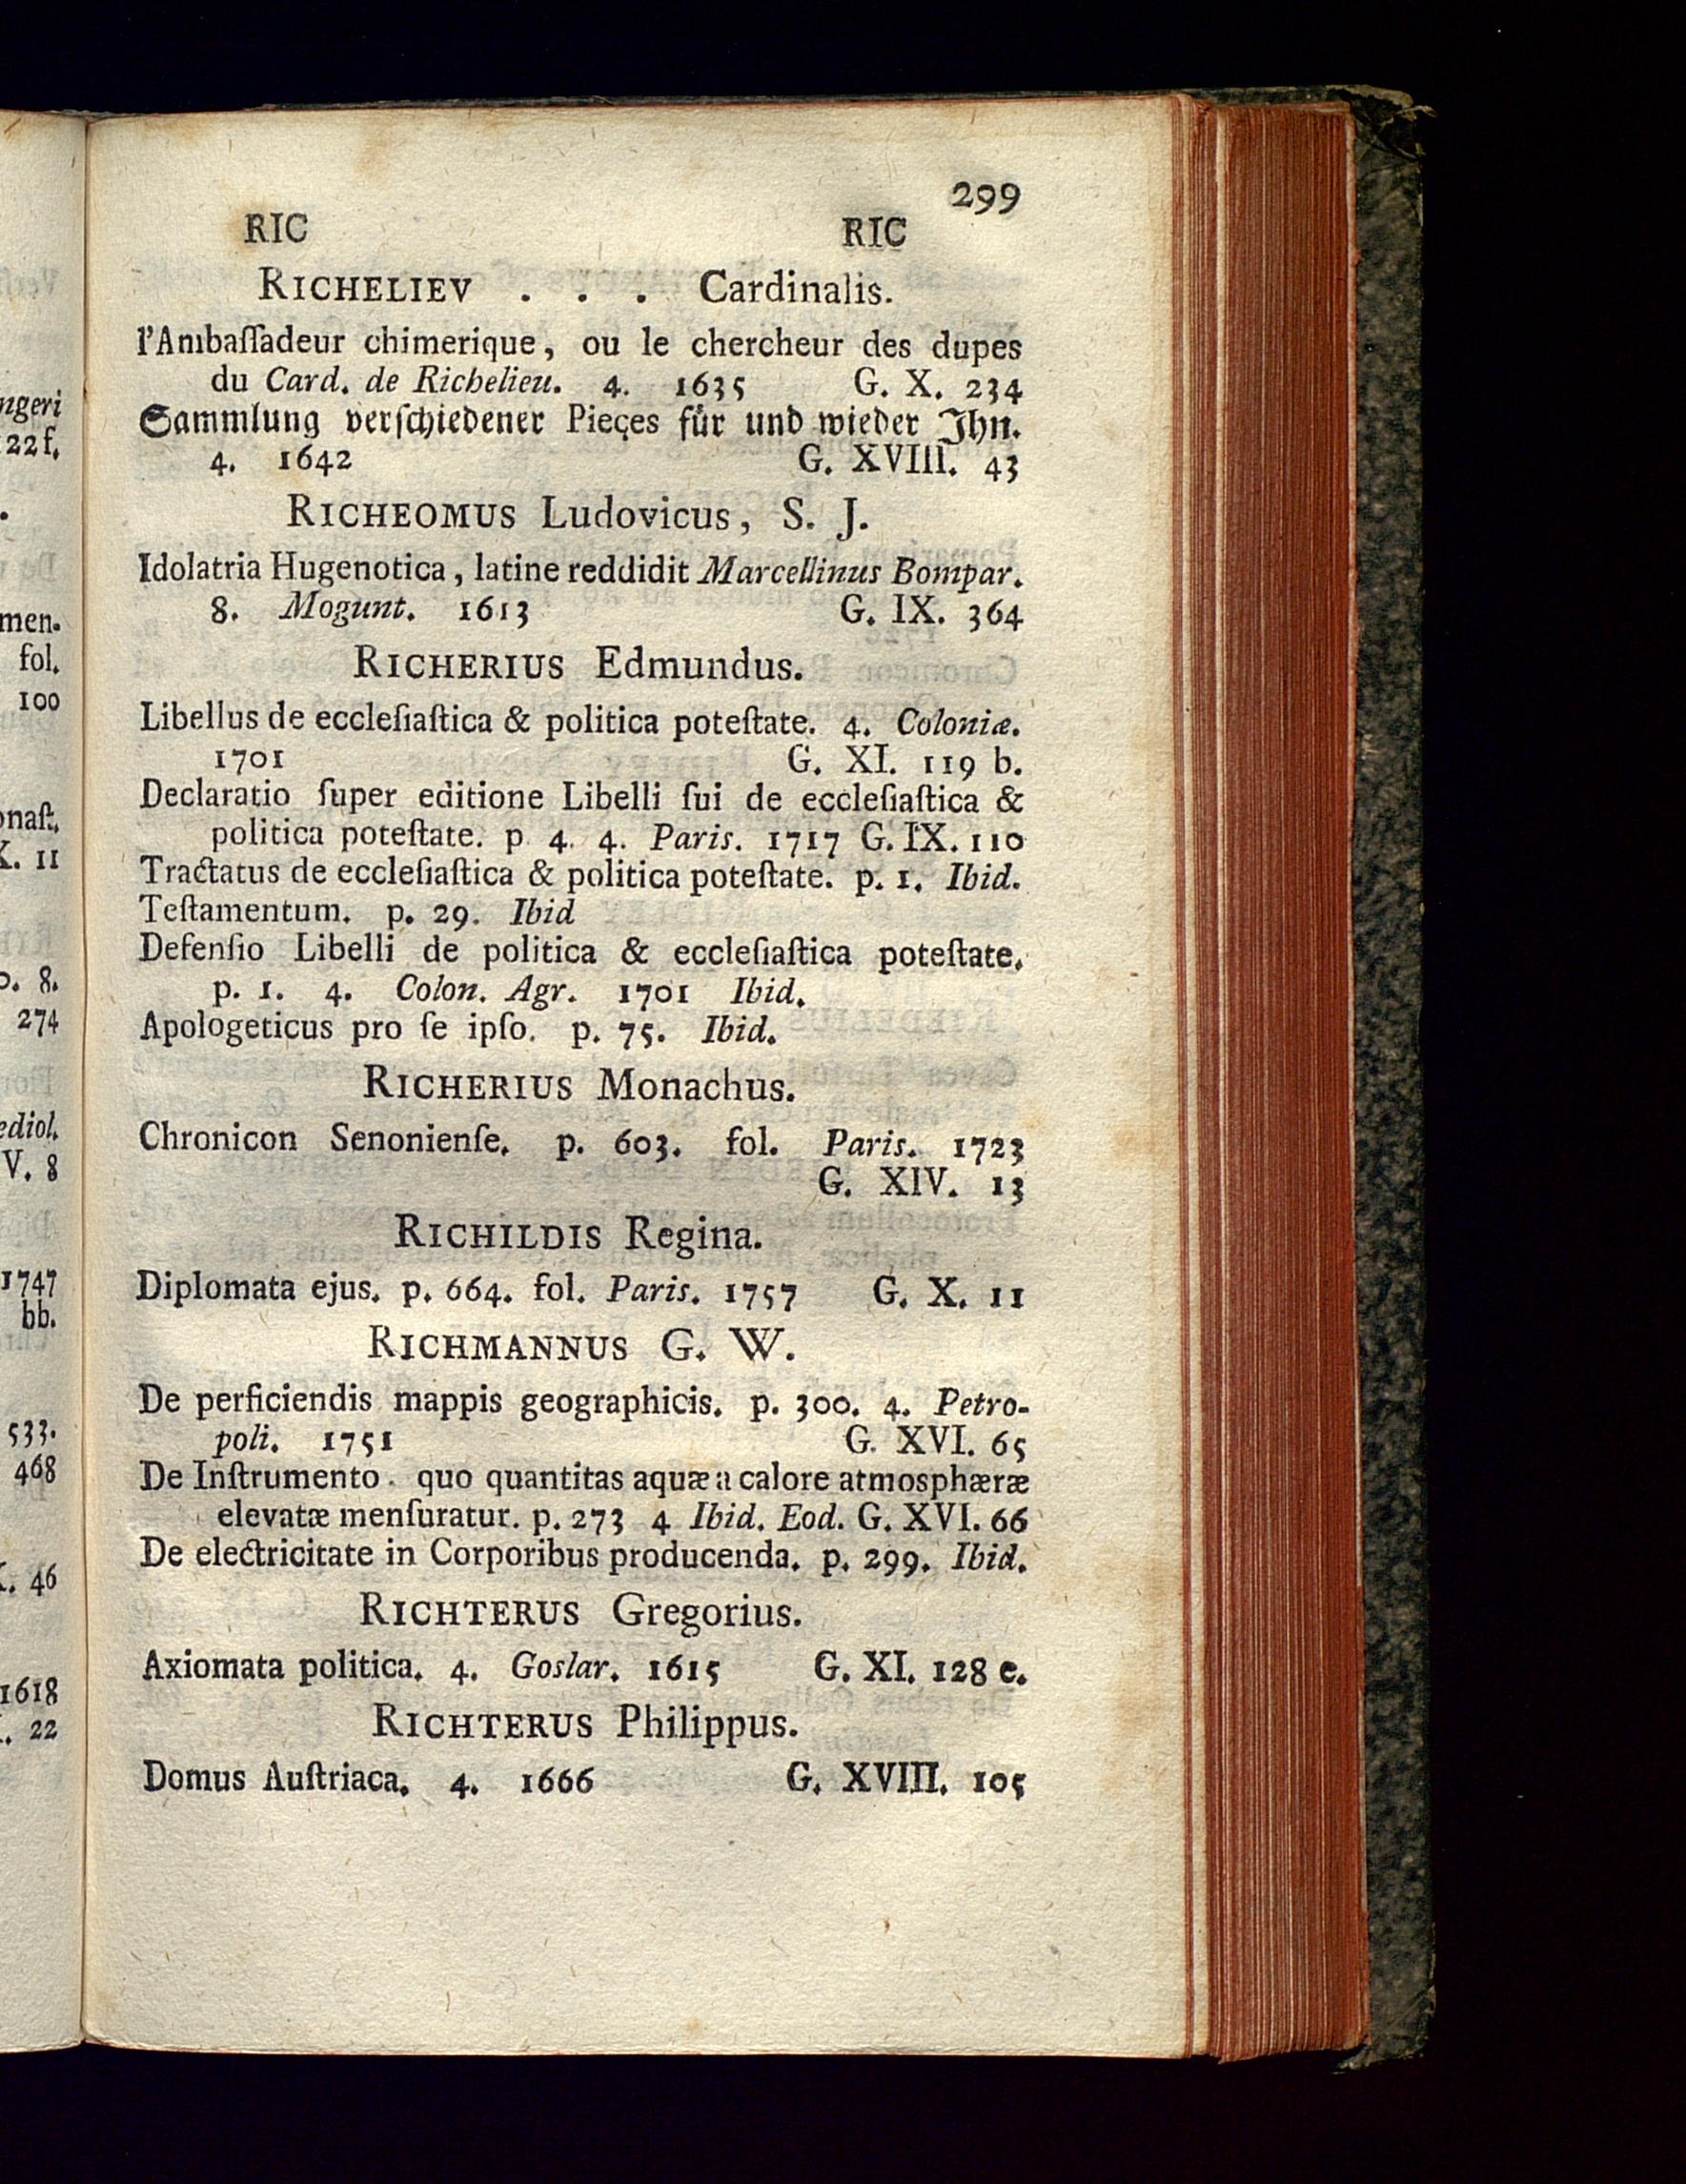 299
RIC RIC
RICHELIEV . . . Cardinalis.
l'Ambaſſadeur chimerique, ou le chercheur des dupes
du Card. de Richelieu. 4. 1635 G. X. 234
Sammlung verſchiedener Pieçes für und wieder Ihn.
4. 1642 G. XVIII. 43
RICHEOMUS Ludovicus, S. J.
Idolatria Hugenotica, latine reddidit Marcellinus Bompar.
8. Mogunt. 1613 G. IX. 364
RICHERIUS Edmundus.
Libellus de eccleſiaſtica & politica poteſtate. 4. Coloniæ.
1701 G. XI. 119 b.
Declaratio ſuper editione Libelli ſui de eccleſiaſtica &
politica poteſtate. p. 4. 4. Paris. 1717 G. IX. 110
Tractatus de eccleſiaſtica & politica poteſtate. p. 1. Ibid.
Teſtamentum. p. 29. Ibid
Defenſio Libelli de politica & eccleſiaſtica poteſtate.
p. 1. 4. Colon. Agr. 1701 Ibid.
Apologeticus pro ſe ipſo. p. 75. Ibid.
RICHERIUS Monachus.
Chronicon Senonienſe. p. 603. fol. Paris. 1723
G. XIV. 13
RICHILDIS Regina.
Diplomata ejus. p. 664. fol. Paris. 1757 G. X. 11
RICHMANNUS G. W.
De perficiendis mappis geographicis. p. 300. 4. Petro-
poli. 1751 G. XVI. 65
De Inſtrumento. quo quantitas aquæ a calore atmosphæræ
elevatæ menſuratur. p. 273 4 Ibid. Eod. G. XVI. 66
De electricitate in Corporibus producenda. p. 299. Ibid.
RICHTERUS Gregorius.
Axiomata politica. 4. Goslar. 1615 G. XI. 128 e.
RICHTERUS Philippus.
Domus Auſtriaca. 4. 1666 G. XVIII. 105